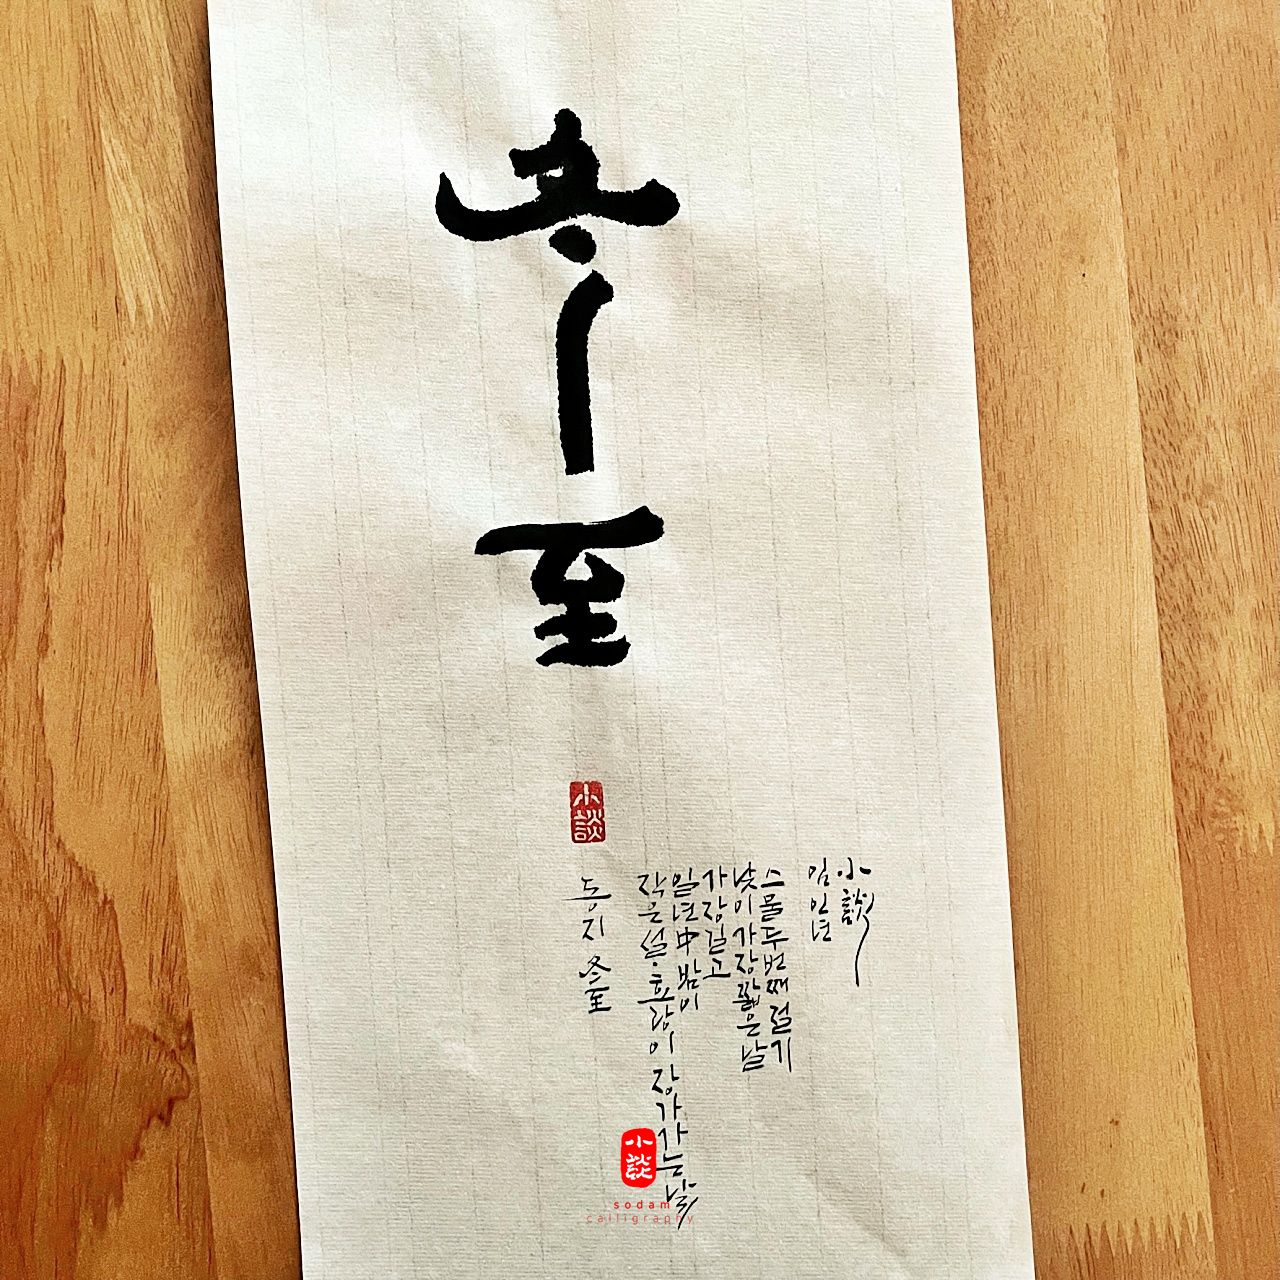 冬至
小談
동지 冬至
작은설·호랑이 장가가는 날
일년中 밤이
가장 길고
낮이 가장 짧은 날
스물두번째 절기
임인년
小談
小談
sodam
calligraphy